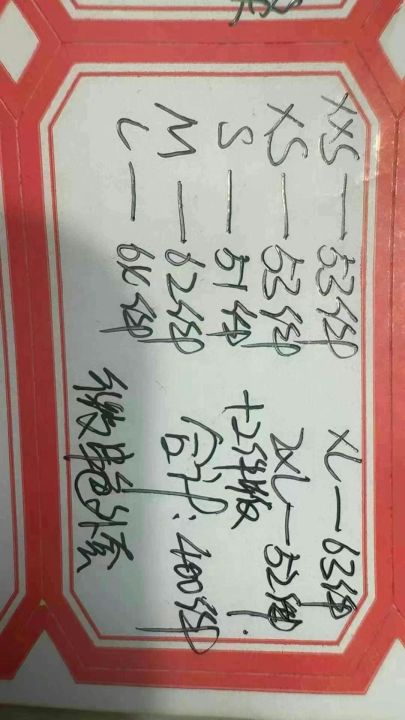 XXS — 53件
XS — 53件
S — 51件
M — 62件
L — 64件
XL — 63件
2XL — 52件
+2件版
合计:400件
单色外套